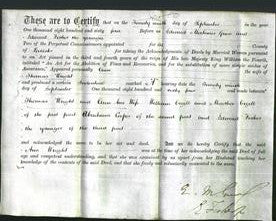 These are to Certify that on the Twenty ninth day of September in the year
One thousand eight hundred and sixty four Before us
Edward Foster the younger
Two of the Perpetual Commissioners appointed for the County
of for taking the Acknowledgments of Deeds by Married Women pursuant
to an Act passed in the third and fourth years of the reign of his late Majesty King William the Fourth,
intituled "An Act for the Abolition of Fines and Recoveries, and for the substitution of more simple modes of
Assurance," Appeared personally Ann the wife of
Thomas Wright
and produced a certain marked A bearing date the Twenty ninth day
of September One thousand eight hundred and sixty four and made between
Thomas Wright and Ann his Wife William Wright and
of the first part Abraham of the second part and Edward Foster
the younger of the third part
and acknowledged the same to be her act and deed. And we do hereby Certify that the said
Ann Wright was at the time of her acknowledging the said Deed of full
age and competent understanding, and that she was examined by us apart from her Husband touching her
knowledge of the contents of the said Deed, and that she freely and voluntarily consented to the same.